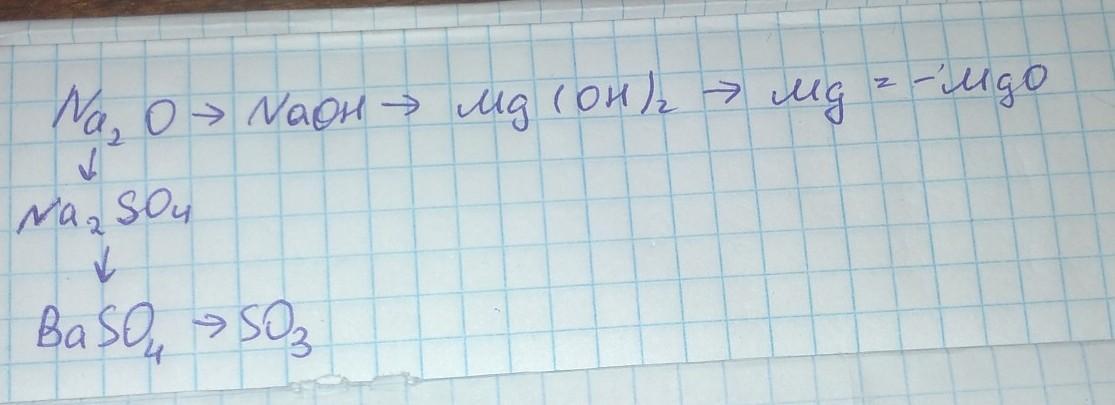 Na₂O → NaOH → Mg(OH)₂ → Mg = -'MgO
↓
Na₂SO₄
↓
BaSO₄ → SO₃